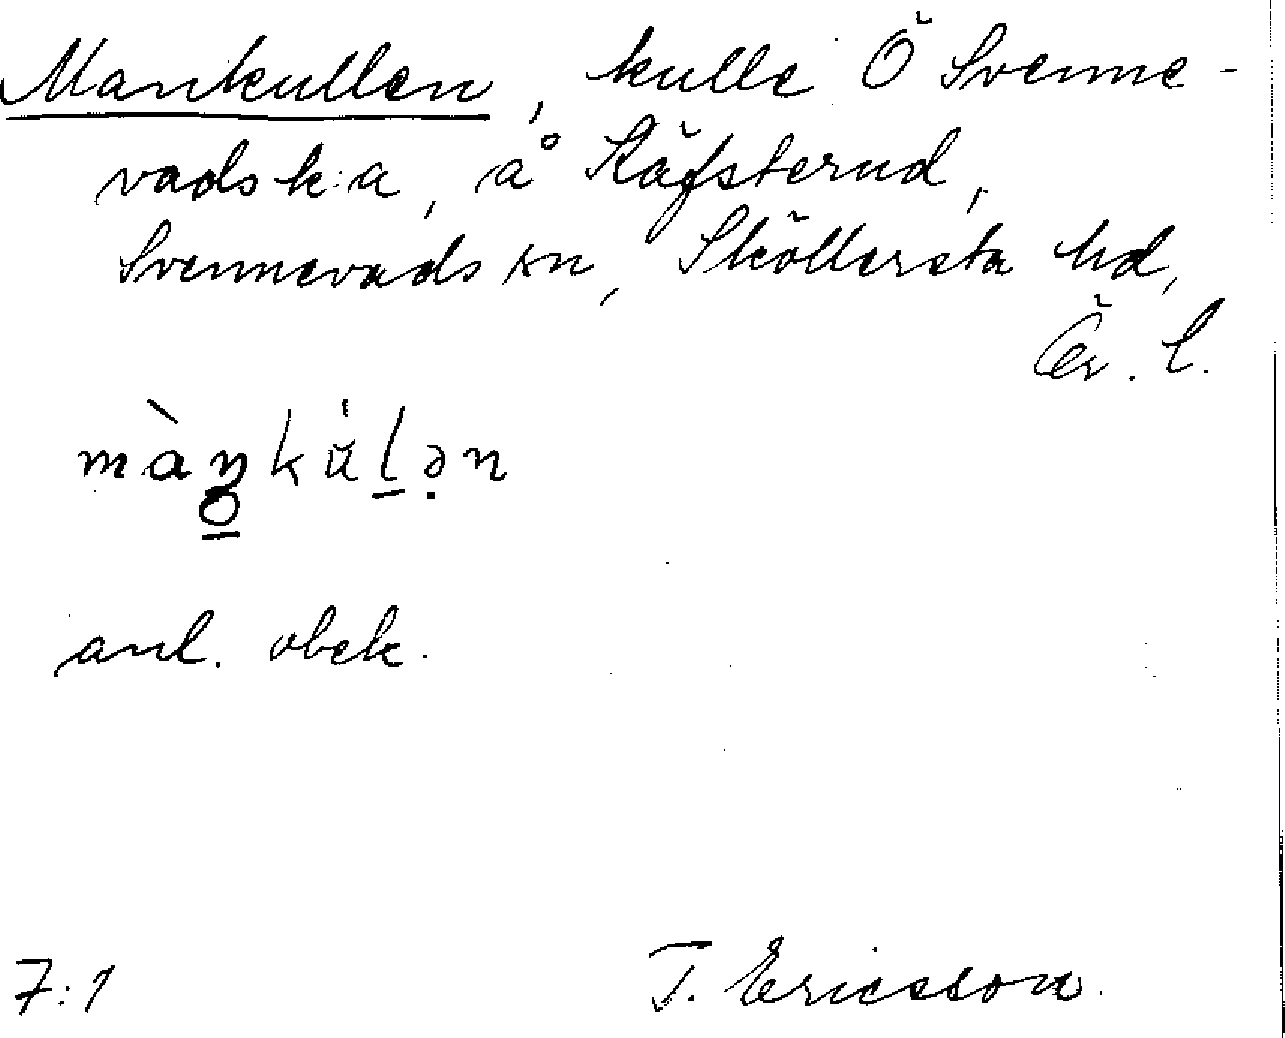 Mankullen, kulle Ö Svenne-
vads k:a, å Skäfsterud,
Svennevads sn, Sköllersta hd,
Ör. l.
màŋkúlən
anl. obek.
7:1 T. Ericsson.